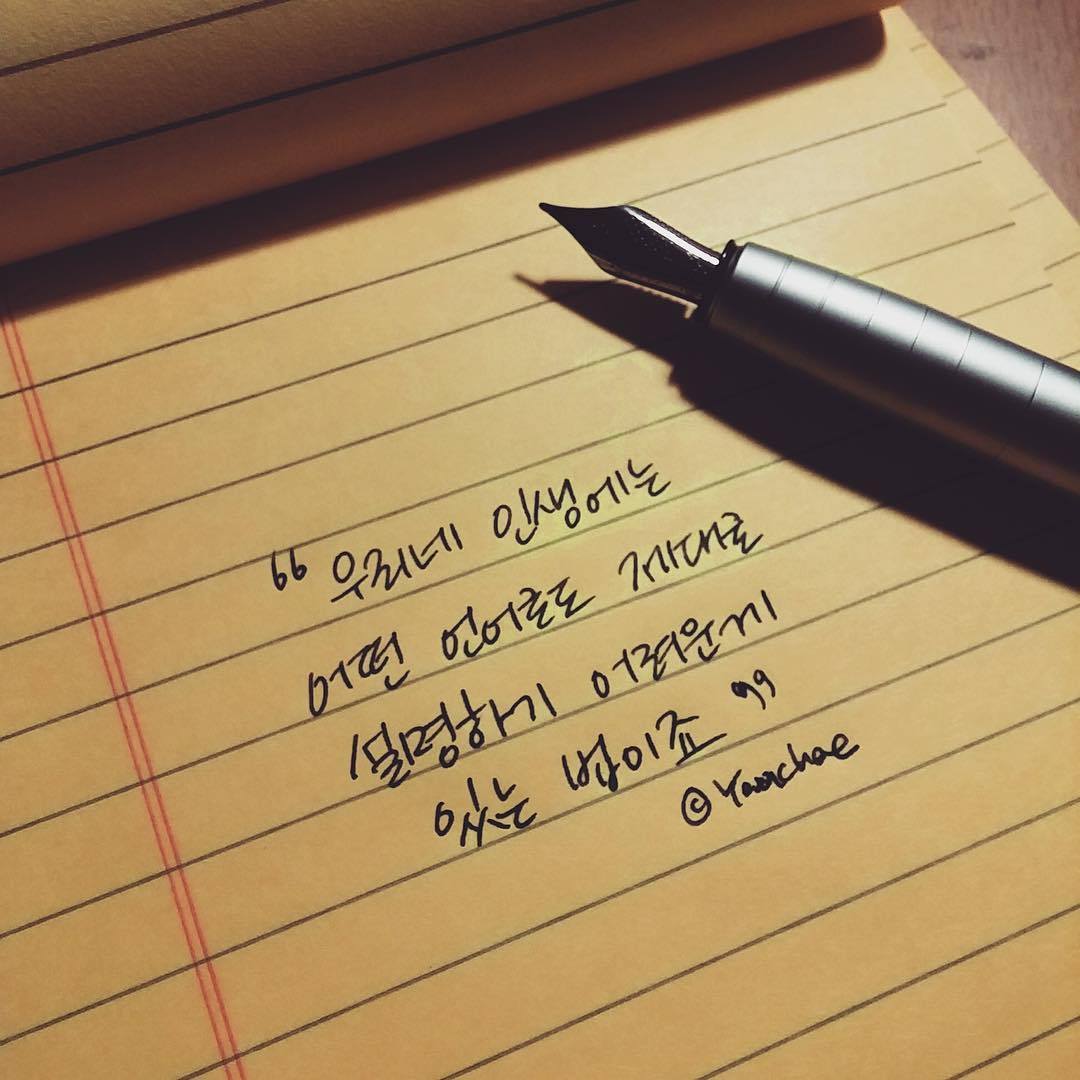 “우리네 인생에는
어떤 언어로도 제대로
설명하기 어려운게
있는 법이죠”
©Yoonchae